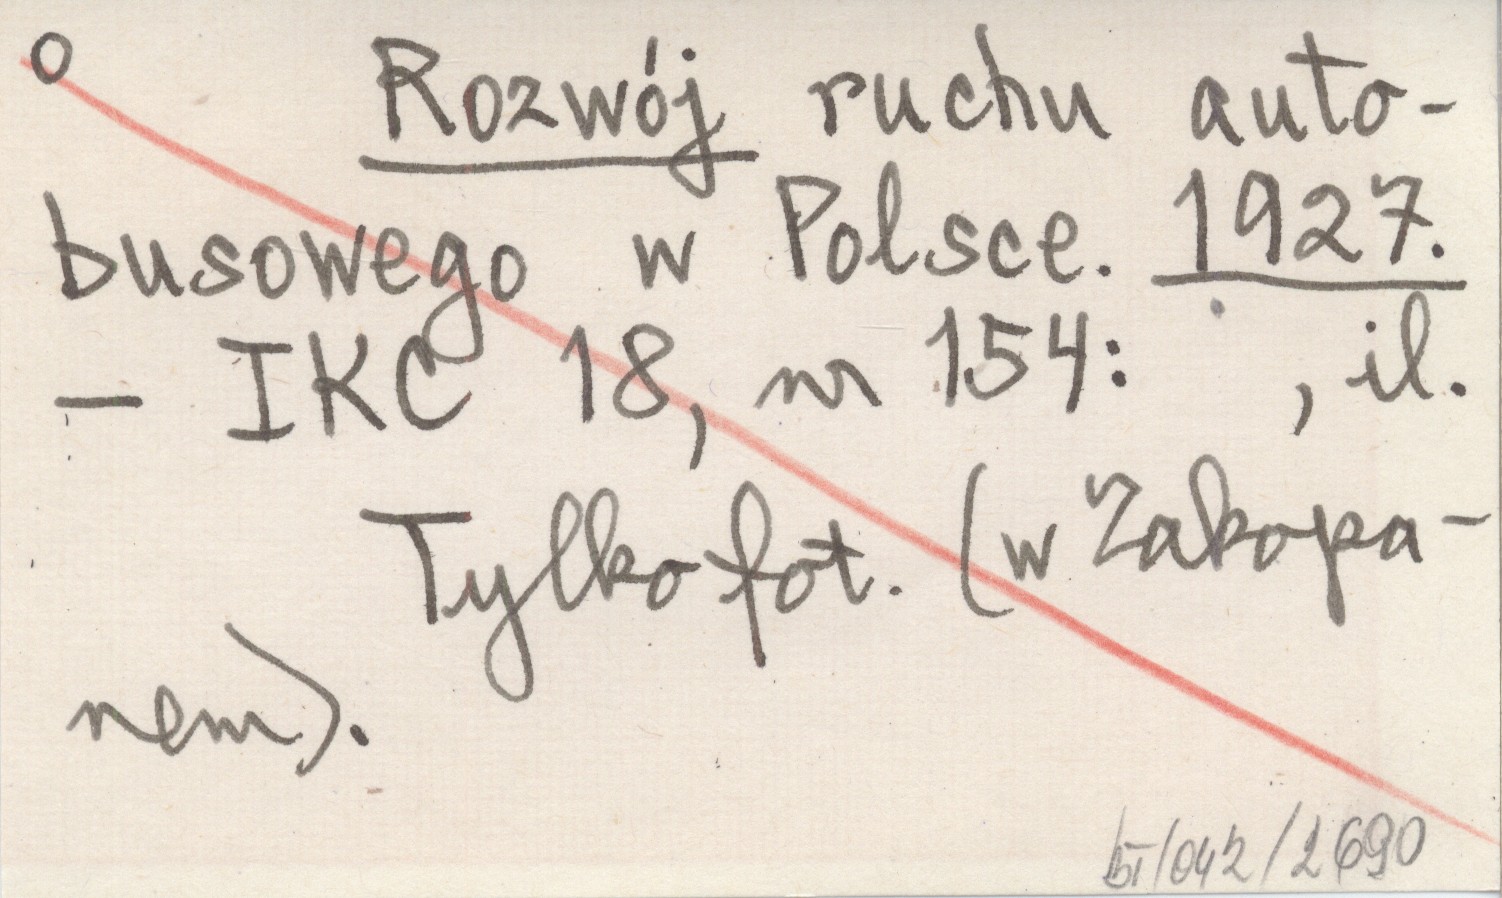 o
Rozwój ruchu auto-
busowego w Polsce. 1927.
— IKC 18, nr 154: , il.
Tylko fot. (w Zakopa-
nem).
bT/042/2690